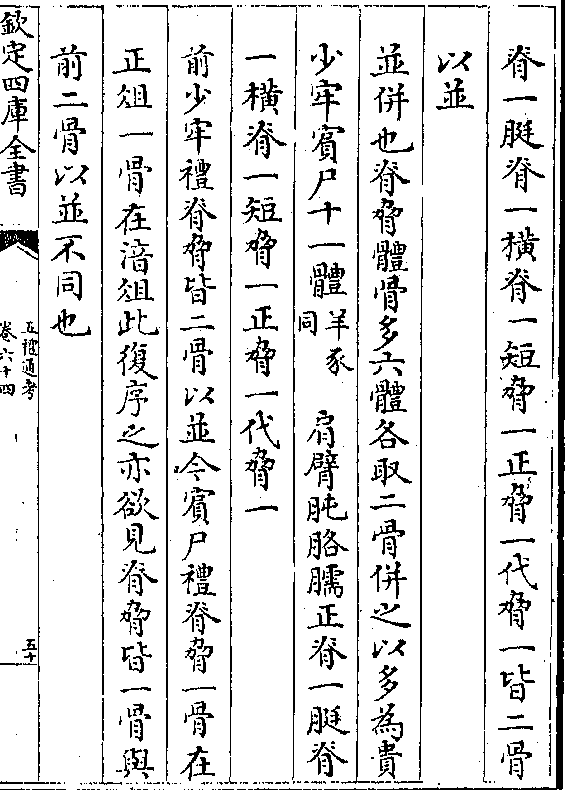 脊一脡脊一橫脊一短脅一正脅一代脅一皆二骨
以並
並併也脊脅體骨多六體各取二骨併之以多為貴
少牢賓尸十一體羊豕同 肩臂肫胳臑正脊一脡脊
一橫脊一短脅一正脅一代脅一
前少牢禮脊脅皆二骨以並今賓尸禮脊脅一骨在
正俎一骨在湆俎此復序之亦欲見脊脅皆一骨與
前二骨以並不同也
欽定四庫全書
五禮通考
卷六十四
五十